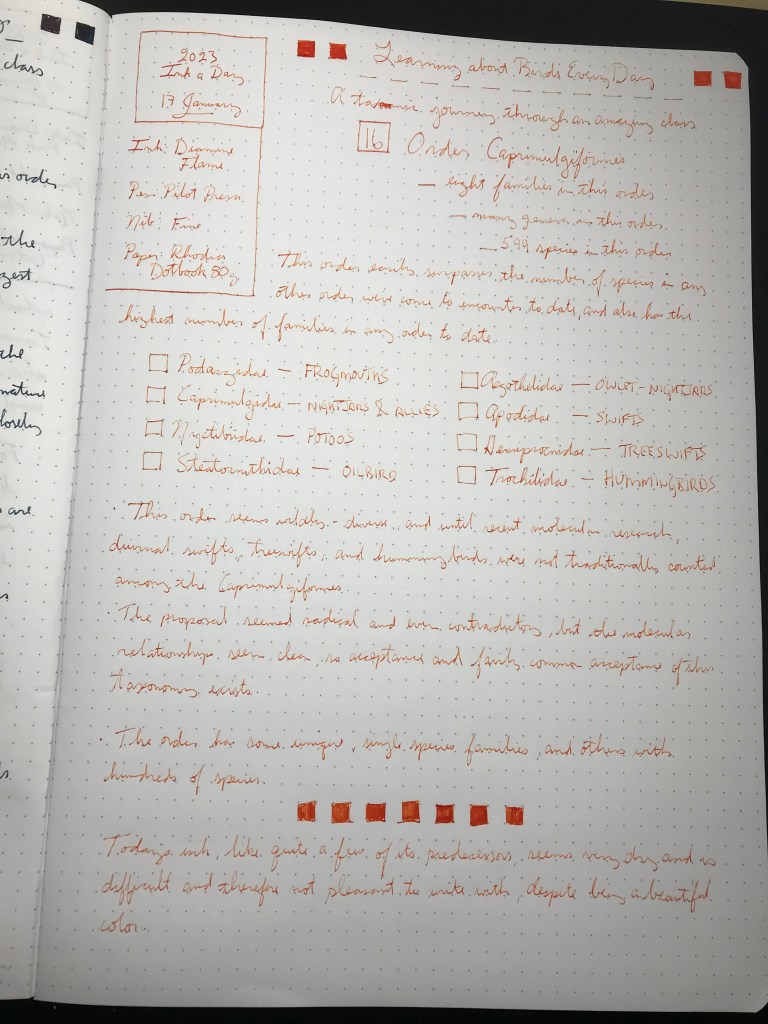 class
order
the
the
nature
closely
are
2023
Ink a Day
17 January
Ink: Diamine
Flame
Pen: Pilot Prera
Nib: Fine
Paper: Rhodia
Dotbook 80g
Learning about Birds Every Day
A journey through an amazing class
16 Order Caprimulgiformes
— eight families in this order
— many genera in this order
— 599 species in this order
This order easily surpasses the number of species in any
other order we've come to encounter to date, and also has the
highest number of families in any order to date.
Podargidae — FROGMOUTHS
Caprimulgidae — NIGHTJARS & ALLIES
Nyctibiidae — POTOOS
Steatornithidae — OILBIRD
Aegothelidae — OWLET-NIGHTJARS
Apodidae — SWIFTS
Hemiprocnidae — TREESWIFTS
Trochilidae — HUMMINGBIRDS
· This order seems wildly diverse, and until recent molecular research,
diurnal swifts, treeswifts, and hummingbirds were not traditionally counted
among the Caprimulgiformes.
· The proposal seemed radical and even contradictory, but the molecular
relationships seem clear, so acceptance and fairly common acceptance of this
taxonomy exists.
· The order has some unique, single species families, and others with
hundreds of species.
Today's ink, like quite a few of its predecessors, seems very dry and is
difficult and therefore not pleasant to write with, despite being a beautiful
color.